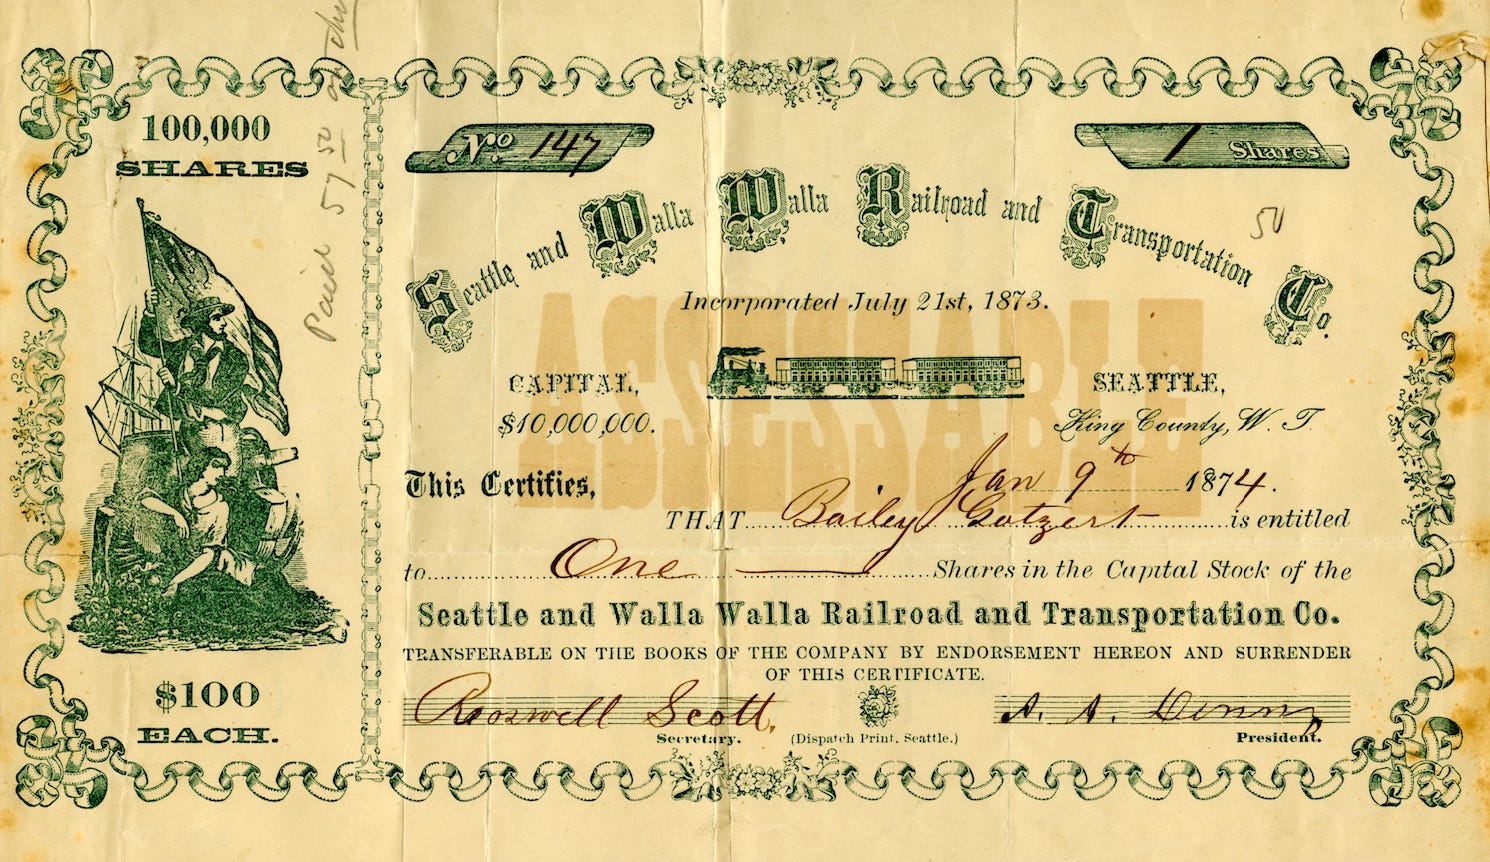 100,000
SHARES
$100
EACH.
Paid 57 50
No 147
1 Shares
50
Seattle and Walla Walla Railroad and Transportation Co.
Incorporated July 21st, 1873.
ASSESSABLE
CAPITAL,
$10,000,000.
SEATTLE,
King County, W. T.
This Certifies,
Jan 9th 1874.
THAT Bailey Gatzert is entitled
to One Shares in the Capital Stock of the
Seattle and Walla Walla Railroad and Transportation Co.
TRANSFERABLE ON THE BOOKS OF THE COMPANY BY ENDORSEMENT HEREON AND SURRENDER
OF THIS CERTIFICATE.
Roswell Scott,
Secretary.
(Dispatch Print, Seattle.)
A. A. Denny
President.